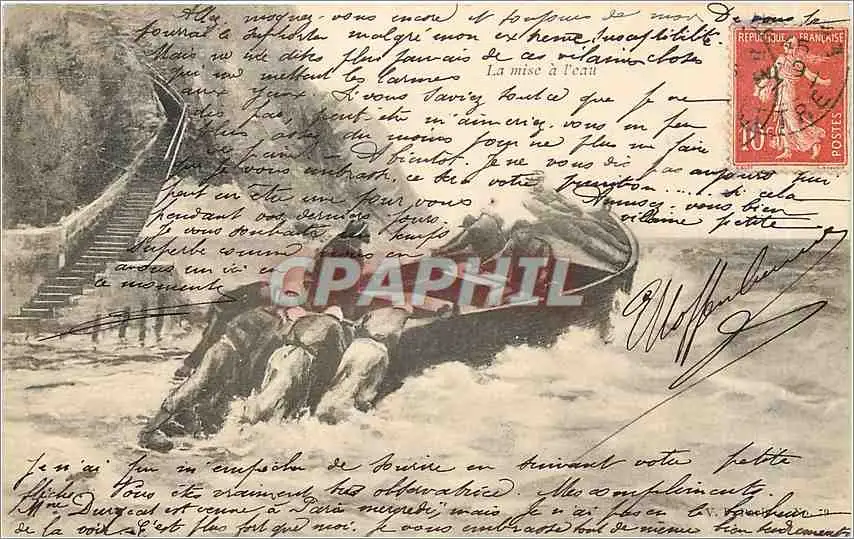 Allez moquez-vous encore et toujours de moi. De vous je
pourrai le supporter malgré mon extrême susceptibilité.
Mais ne me dites plus jamais de ces vilaines choses
qui me mettent les larmes
aux yeux. Si vous saviez tout ce que je ne
dis pas, peut-être m'aimeriez-vous un peu
plus assez du moins pour ne plus me faire
de peine. A bientôt. Je ne vous dis pas aujourd'hui
que je vous embrasse, ce sera votre punition.... si cela
peut en être une pour vous
Amusez-vous bien
vilaine petite
pendant vos derniers jours.
Je vous souhaite un temps
superbe comme nous en
avons un ici en
ce moment
La mise à l'eau
REPUBLIQUE FRANÇAISE
10
POSTES
CPAPHIL
Je n'ai pu m'empêcher de sourire en suivant votre petite
flèche. Vous êtes vraiment très observatrice. Mes compliments.
Mme est venue à Paris mercredi mais je n'ai pas eu le bonheur
de la voir. C'est plus fort que moi. Je vous embrasse tout de même bien tendrement